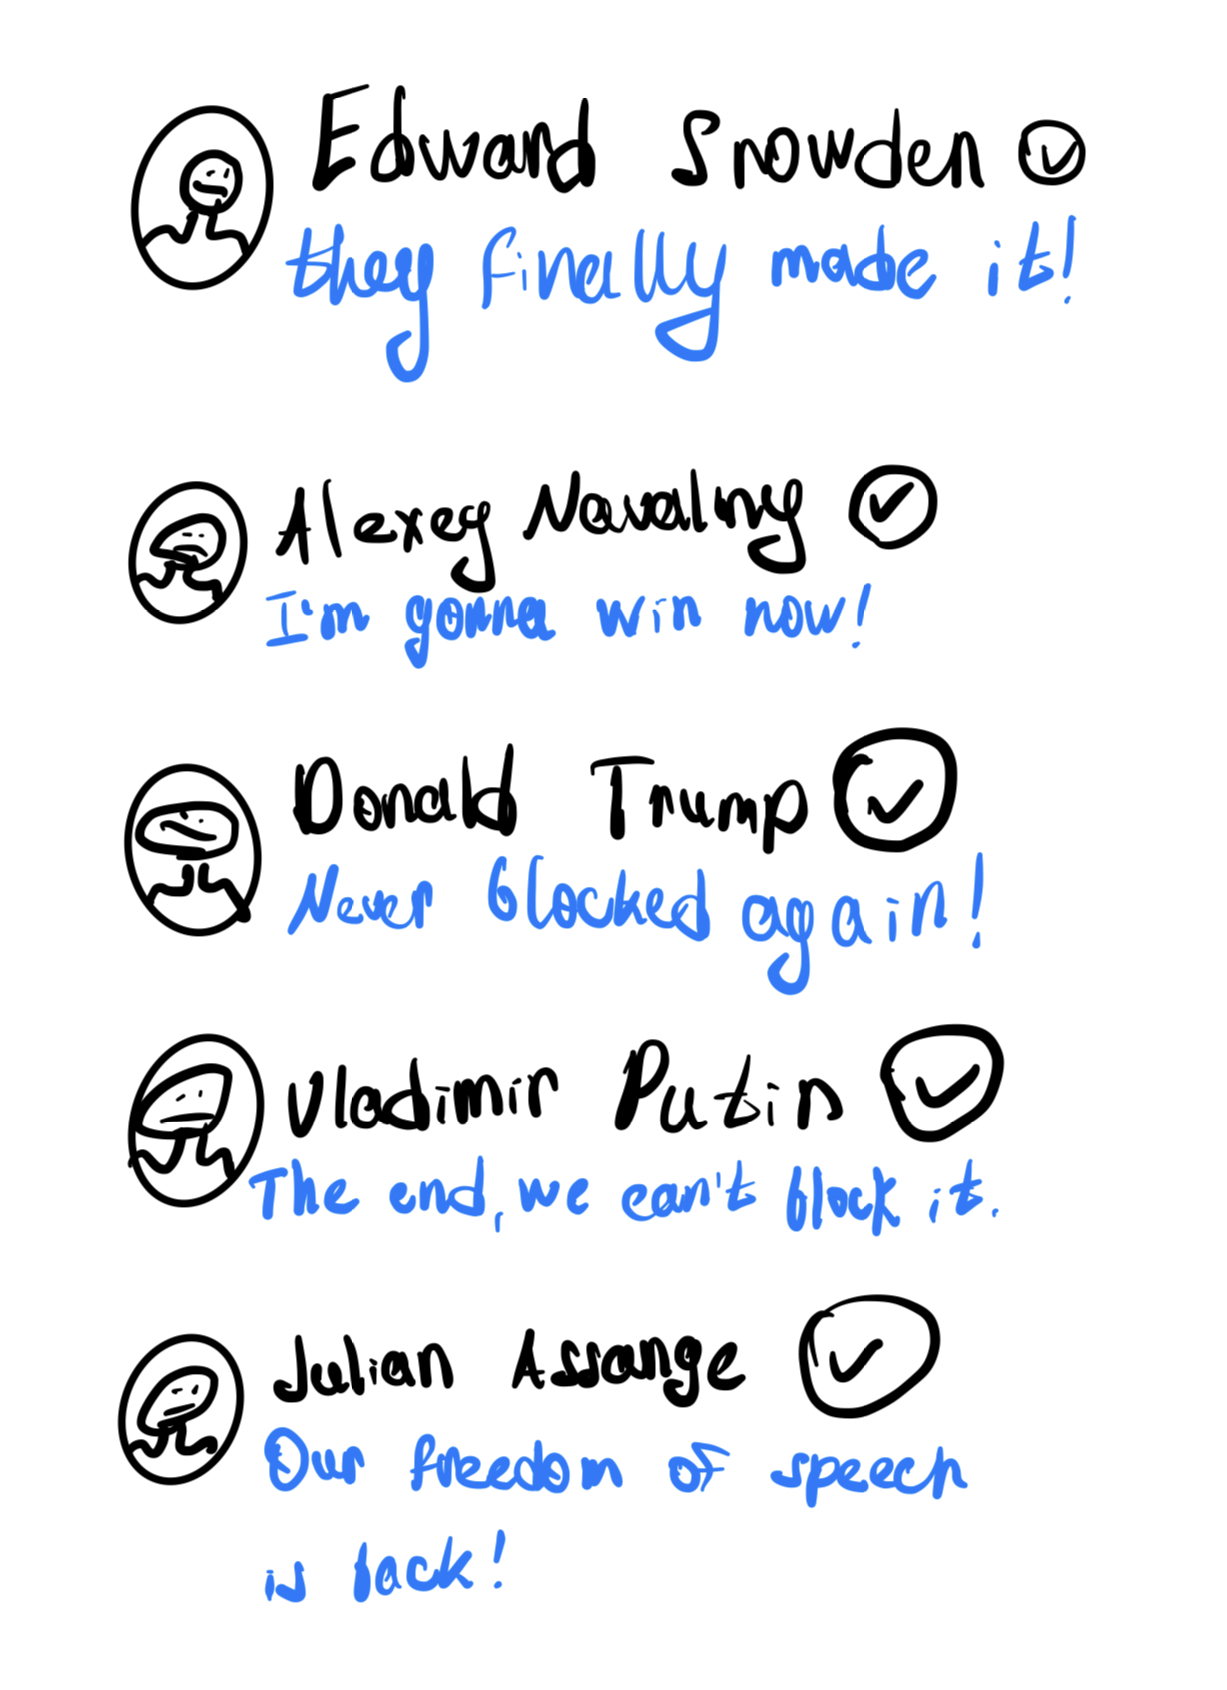 Edward Snowden
they finally made it!
Alexey Navalny
I'm gonna win now!
Donald Trump
Never blocked again!
Vladimir Putin
The end, we can't block it.
Julian Assange
Our freedom of speech
is back!